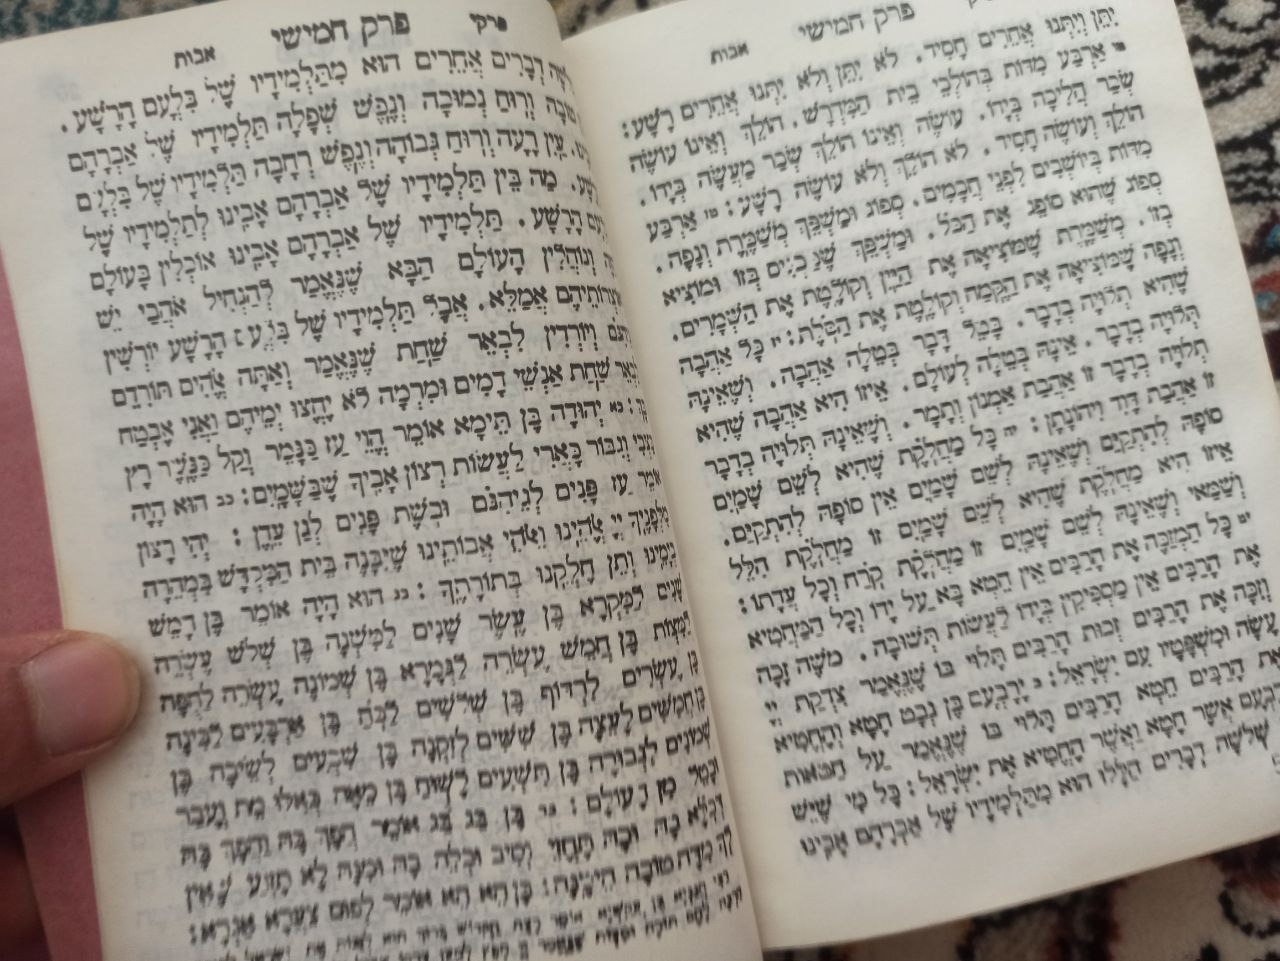 אבות פרק חמישי
יִתֵּן וְיִתְּנוּ אֲחֵרִים חָסִיד. לֹא יִתֵּן וְלֹא יִתְּנוּ אֲחֵרִים רָשָׁע:
אַרְבַּע מִדּוֹת בְּהוֹלְכֵי בֵית הַמִּדְרָשׁ. הוֹלֵךְ וְאֵינוֹ עוֹשֶׂה
שְׂכַר הֲלִיכָה בְּיָדוֹ. עוֹשֶׂה וְאֵינוֹ הוֹלֵךְ שְׂכַר מַעֲשֶׂה בְּיָדוֹ.
הוֹלֵךְ וְעוֹשֶׂה חָסִיד. לֹא הוֹלֵךְ וְלֹא עוֹשֶׂה רָשָׁע: אַרְבַּע
מִדּוֹת בְּיוֹשְׁבִים לִפְנֵי חֲכָמִים. סְפוֹג וּמַשְׁפֵּךְ מְשַׁמֶּרֶת וְנָפָה.
סְפוֹג שֶׁהוּא סוֹפֵג אֶת הַכֹּל. וּמַשְׁפֵּךְ שֶׁמַּכְנִיס בְּזוֹ וּמוֹצִיא
בְזוֹ. מְשַׁמֶּרֶת שֶׁמּוֹצִיאָה אֶת הַיַּיִן וְקוֹלֶטֶת אֶת הַשְּׁמָרִים.
וְנָפָה שֶׁמּוֹצִיאָה אֶת הַקֶּמַח וְקוֹלֶטֶת אֶת הַסֹּלֶת: כָּל אַהֲבָה
שֶׁהִיא תְלוּיָה בְדָבָר. בָּטֵל דָּבָר בְּטֵלָה אַהֲבָה. וְשֶׁאֵינָהּ
תְּלוּיָה בְדָבָר. אֵינָהּ בְּטֵלָה לְעוֹלָם. אֵיזוֹ הִיא אַהֲבָה שֶׁהִיא
תְלוּיָה בְדָבָר זוֹ אַהֲבַת אַמְנוֹן וְתָמָר. וְשֶׁאֵינָהּ תְּלוּיָה בְדָבָר
זוֹ אַהֲבַת דָּוִד וִיהוֹנָתָן: כָּל מַחֲלֹקֶת שֶׁהִיא לְשֵׁם שָׁמַיִם
סוֹפָהּ לְהִתְקַיֵּם וְשֶׁאֵינָהּ לְשֵׁם שָׁמַיִם אֵין סוֹפָהּ לְהִתְקַיֵּם.
אֵיזוֹ הִיא מַחֲלֹקֶת שֶׁהִיא לְשֵׁם שָׁמַיִם זוֹ מַחֲלֹקֶת הִלֵּל
וְשַׁמַּאי וְשֶׁאֵינָהּ לְשֵׁם שָׁמַיִם זוֹ מַחֲלֹקֶת קֹרַח וְכָל עֲדָתוֹ:
יט כָּל הַמְזַכֶּה אֶת הָרַבִּים אֵין חֵטְא בָּא עַל יָדוֹ וְכָל הַמַּחֲטִיא
אֶת הָרַבִּים אֵין מַסְפִּיקִין בְּיָדוֹ לַעֲשׂוֹת תְּשׁוּבָה. מֹשֶׁה זָכָה
וְזִכָּה אֶת הָרַבִּים זְכוּת הָרַבִּים תָּלוּי בּוֹ שֶׁנֶּאֱמַר צִדְקַת יְיָ
עָשָׂה וּמִשְׁפָּטָיו עִם יִשְׂרָאֵל: כ יָרָבְעָם בֶּן נְבָט חָטָא וְהֶחֱטִיא
אֶת הָרַבִּים חֵטְא הָרַבִּים תָּלוּי בּוֹ שֶׁנֶּאֱמַר עַל חַטֹּאות
יָרָבְעָם אֲשֶׁר חָטָא וַאֲשֶׁר הֶחֱטִיא אֶת יִשְׂרָאֵל: כָּל מִי שֶׁיֵּשׁ
שְׁלֹשָׁה דְבָרִים הַלָּלוּ הוּא מִתַּלְמִידָיו שֶׁל אַבְרָהָם אָבִינוּ
פרקי פרק חמישי אבות
דְּבָרִים אֲחֵרִים הוּא מִתַּלְמִידָיו שֶׁל בִּלְעָם הָרָשָׁע.
טוֹבָה וְרוּחַ נְמוּכָה וְנֶפֶשׁ שְׁפָלָה תַּלְמִידָיו שֶׁל אַבְרָהָם
עַיִן רָעָה וְרוּחַ גְּבוֹהָה וְנֶפֶשׁ רְחָבָה תַּלְמִידָיו שֶׁל בִּלְעָם
מַה בֵּין תַּלְמִידָיו שֶׁל אַבְרָהָם אָבִינוּ לְתַלְמִידָיו שֶׁל
הָרָשָׁע. תַּלְמִידָיו שֶׁל אַבְרָהָם אָבִינוּ אוֹכְלִין בָּעוֹלָם
וְנוֹחֲלִין הָעוֹלָם הַבָּא שֶׁנֶּאֱמַר לְהַנְחִיל אֹהֲבַי יֵשׁ
אֲמַלֵּא. אֲבָל תַּלְמִידָיו שֶׁל בִּלְעָם הָרָשָׁע יוֹרְשִׁין
וְיוֹרְדִין לִבְאֵר שַׁחַת שֶׁנֶּאֱמַר וְאַתָּה אֱלֹהִים תּוֹרִדֵם
שַׁחַת אַנְשֵׁי דָמִים וּמִרְמָה לֹא יֶחֱצוּ יְמֵיהֶם וַאֲנִי אֶבְטַח
כא יְהוּדָה בֶּן תֵּימָא אוֹמֵר הֱוֵי עַז כַּנָּמֵר וְקַל כַּנֶּשֶׁר רָץ
וְגִבּוֹר כָּאֲרִי לַעֲשׂוֹת רְצוֹן אָבִיךָ שֶׁבַּשָּׁמָיִם: כב הוּא הָיָה
עַז פָּנִים לְגֵיהִנֹּם וּבֹשֶׁת פָּנִים לְגַן עֵדֶן: יְהִי רָצוֹן
מִלְּפָנֶיךָ יְיָ אֱלֹהֵינוּ וֵאלֹהֵי אֲבוֹתֵינוּ שֶׁיִּבָּנֶה בֵּית הַמִּקְדָּשׁ בִּמְהֵרָה
בְיָמֵינוּ וְתֵן חֶלְקֵנוּ בְּתוֹרָתֶךָ: כג הוּא הָיָה אוֹמֵר בֶּן חָמֵשׁ
שָׁנִים לַמִּקְרָא בֶּן עֶשֶׂר שָׁנִים לַמִּשְׁנָה בֶּן שְׁלֹשׁ עֶשְׂרֵה
לַמִּצְוֹת בֶּן חֲמֵשׁ עֶשְׂרֵה לַגְּמָרָא בֶּן שְׁמוֹנֶה עֶשְׂרֵה לַחֻפָּה
בֶּן עֶשְׂרִים לִרְדּוֹף בֶּן שְׁלֹשִׁים לַכֹּחַ בֶּן אַרְבָּעִים לַבִּינָה
בֶּן חֲמִשִּׁים לָעֵצָה בֶּן שִׁשִּׁים לְזִקְנָה בֶּן שִׁבְעִים לְשֵׂיבָה בֶּן
שְׁמוֹנִים לִגְבוּרָה בֶּן תִּשְׁעִים לָשׁוּחַ בֶּן מֵאָה כְּאִלּוּ מֵת וְעָבַר
וּבָטֵל מִן הָעוֹלָם: בֶּן בַּג בַּג אוֹמֵר הֲפָךְ בָּהּ וַהֲפָךְ בָּהּ
דְּכֹלָּא בָהּ וּבָהּ תֶּחֱזֵי וְסִיב וּבְלֵה בָהּ וּמִנָּהּ לָא תָזוּעַ שֶׁאֵין
לְךָ מִדָּה טוֹבָה הֵימֶנָּה: בֶּן הֵא הֵא אוֹמֵר לְפוּם צַעֲרָא אַגְרָא: